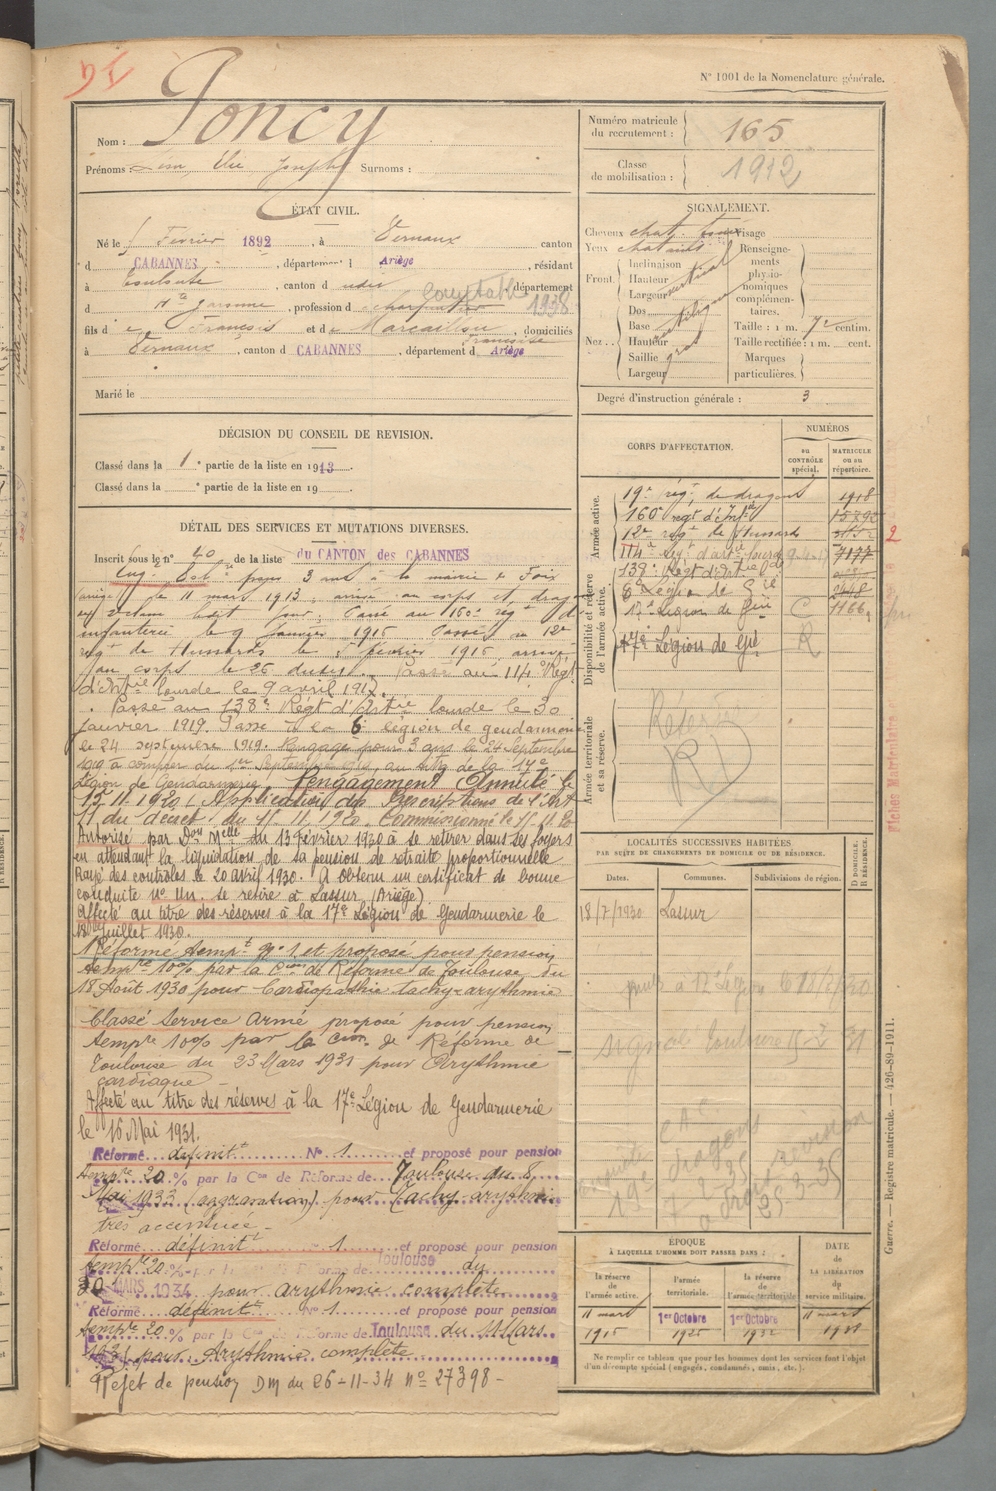 N° 1001 de la Nomenclature générale.
Nom : Poncy
Prénoms : Joseph Surnoms :
Numéro matricule du recrutement : 165
Classe de mobilisation : 1912
ÉTAT CIVIL.
Né le 5 Février 1892, à Vernaux canton
d CABANNES, département d Ariège, résidant
à Toulouse, canton d udit département
d Hte Garonne, profession d charpentier
1938
fils de François et de Marcaillou Françoise domiciliés
à Vernaux, canton d CABANNES, département d Ariège
Marié le
SIGNALEMENT.
Cheveux chat. Visage
Yeux chatains
Front
Inclinaison
Hauteur vertical
Largeur
Nez
Dos
Base
Hauteur
Saillie
Largeur
Renseignements physionomiques complémentaires.
Taille : 1 m. 72 centim.
Taille rectifiée : 1 m. cent.
Marques particulières.
Degré d'instruction générale : 3
DÉCISION DU CONSEIL DE REVISION.
Classé dans la 1e partie de la liste en 1913.
Classé dans la e partie de la liste en 19
DÉTAIL DES SERVICES ET MUTATIONS DIVERSES.
Inscrit sous le n° 40 de la liste du CANTON des CABANNES
Eng. pour 3 ans à la mairie de Foix
(Ariège) le 11 mars 1913, arrivé au corps et dragon
de 2e classe ledit jour. Passé au 160e régt d'
infanterie le 9 Janvier 1916 Passé au 12e
régt de Hussards le 5 février 1916 arrivé
au corps le 26 dudit. Passé au 114e Régt
d'Artie lourde le 9 avril 1917.
Passé au 138e Régt d'Artie lourde le 30
janvier 1919. Passé à la 6e légion de gendarmerie
le 24 septembre 1919. Rengagé pour 3 ans le 24 Septembre
1919 à compter du 1er Septembre 1919, au titre de la 17e
Légion de Gendarmerie. Rengagement Annulé le
15.11.1920 (Application des Prescriptions de l'Art
11 du décret du 15.11.1920. Commissionné le 15.11.20
Autorisé par Don Melle du 13 Février 1930 à se retirer dans ses foyers
en attendant la liquidation de sa pension de retraite proportionnelle
Rayé des contrôles le 20 avril 1930. A obtenu un certificat de bonne
conduite no Un. Se retire à Lassur (Ariège).
Affecté au titre des réserves à la 17e Légion de Gendarmerie le
18 Juillet 1930.
Réformé tempt N° 1 et proposé pour pension
tempre 10% par la Con de Réforme de Toulouse du
18 Août 1930 pour Cardiopathie tachy-arythmie
Classé Service Armé proposé pour pension
tempre 10% par la Con de Réforme de
Toulouse du 23 Mars 1931 pour Arythmie
cardiaque
Affecté au titre des réserves à la 17e Légion de Gendarmerie
le 16 Mai 1931.
Réformé définitt N° 1 et proposé pour pension
tempre 20 % par la Con de Réforme de Toulouse du 8
Mai 1933 (aggravation) pour Tachy-arythmie
très accentuée.
Réformé définitt 1 et proposé pour pension
tempre 20 % par la Con de Réforme de Toulouse du
20 MARS 1934 pour arythmie complète
Réformé définitt N° 1 et proposé pour pension
tempre 20 % par la Con de Réforme de Toulouse du Mars
pour Arythmie complète
Rejet de pension DM du 26-11-34 no 27398-
CORPS D'AFFECTATION.
NUMÉROS
au CONTRÔLE spécial.
MATRICULE ou au répertoire.
Armée active.
19e régt de dragons 1918
160e régt d'Infie
12e régt de Hussards
114e Régt d'artie lourde 7177
138e Régt d'Artie lde
Disponibilité et réserve de l'armée active.
6e Légion de Gie
17e Légion de Gie C 1166
17e Légion de Gie R
Armée territoriale et sa réserve.
Réserve
RD
LOCALITÉS SUCCESSIVES HABITÉES
PAR SUITE DE CHANGEMENTS DE DOMICILE OU DE RÉSIDENCE.
Dates. Communes. Subdivisions de région. D DOMICILE. R RÉSIDENCE.
18/7/1930 Lassur
CAC
19e dragons
25-3-35
ÉPOQUE
À LAQUELLE L'HOMME DOIT PASSER DANS :
la réserve de l'armée active.
l'armée territoriale.
la réserve de l'armée territoriale
DATE DE LA LIBÉRATION du service militaire.
11 mars 1915
1er Octobre 1925
1er Octobre 1932
11 mars
Ne remplir ce tableau que pour les hommes dont les services font l'objet
d'un décompte spécial (engagés, condamnés, omis, etc.).
Guerre. — Registre matricule. — 426-89-1911.
Fiches Matriculaire